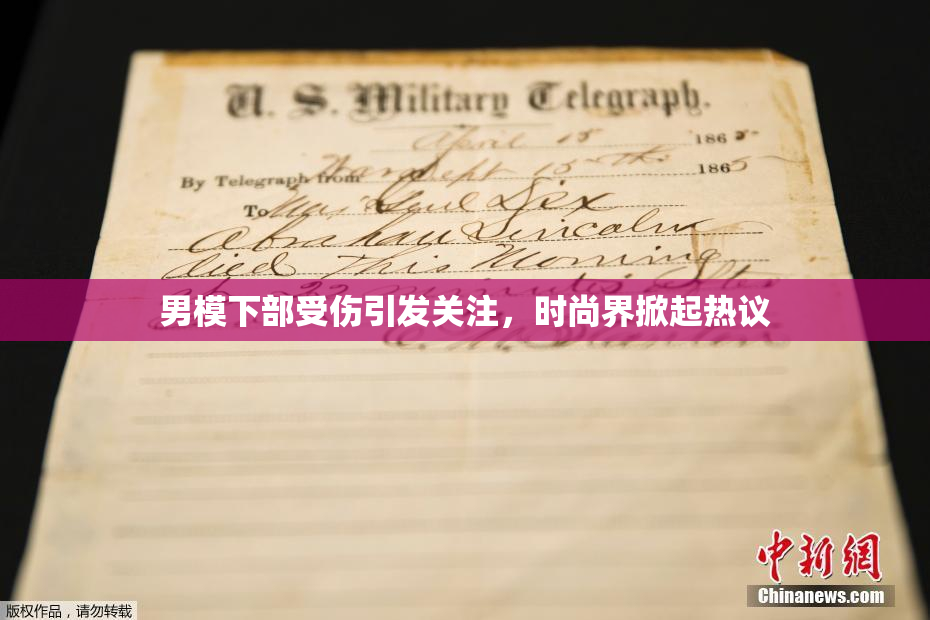 U. S. Military Telegraph.
April 15 1865
By Telegraph from War Dept 15th 1865
To Maj Genl Dix
Abraham Lincoln
died This Morning
at 22 minutes after
男模下部受伤引发关注，时尚界掀起热议
E. M. Stanton
中新网
Chinanews.com
版权作品，请勿转载